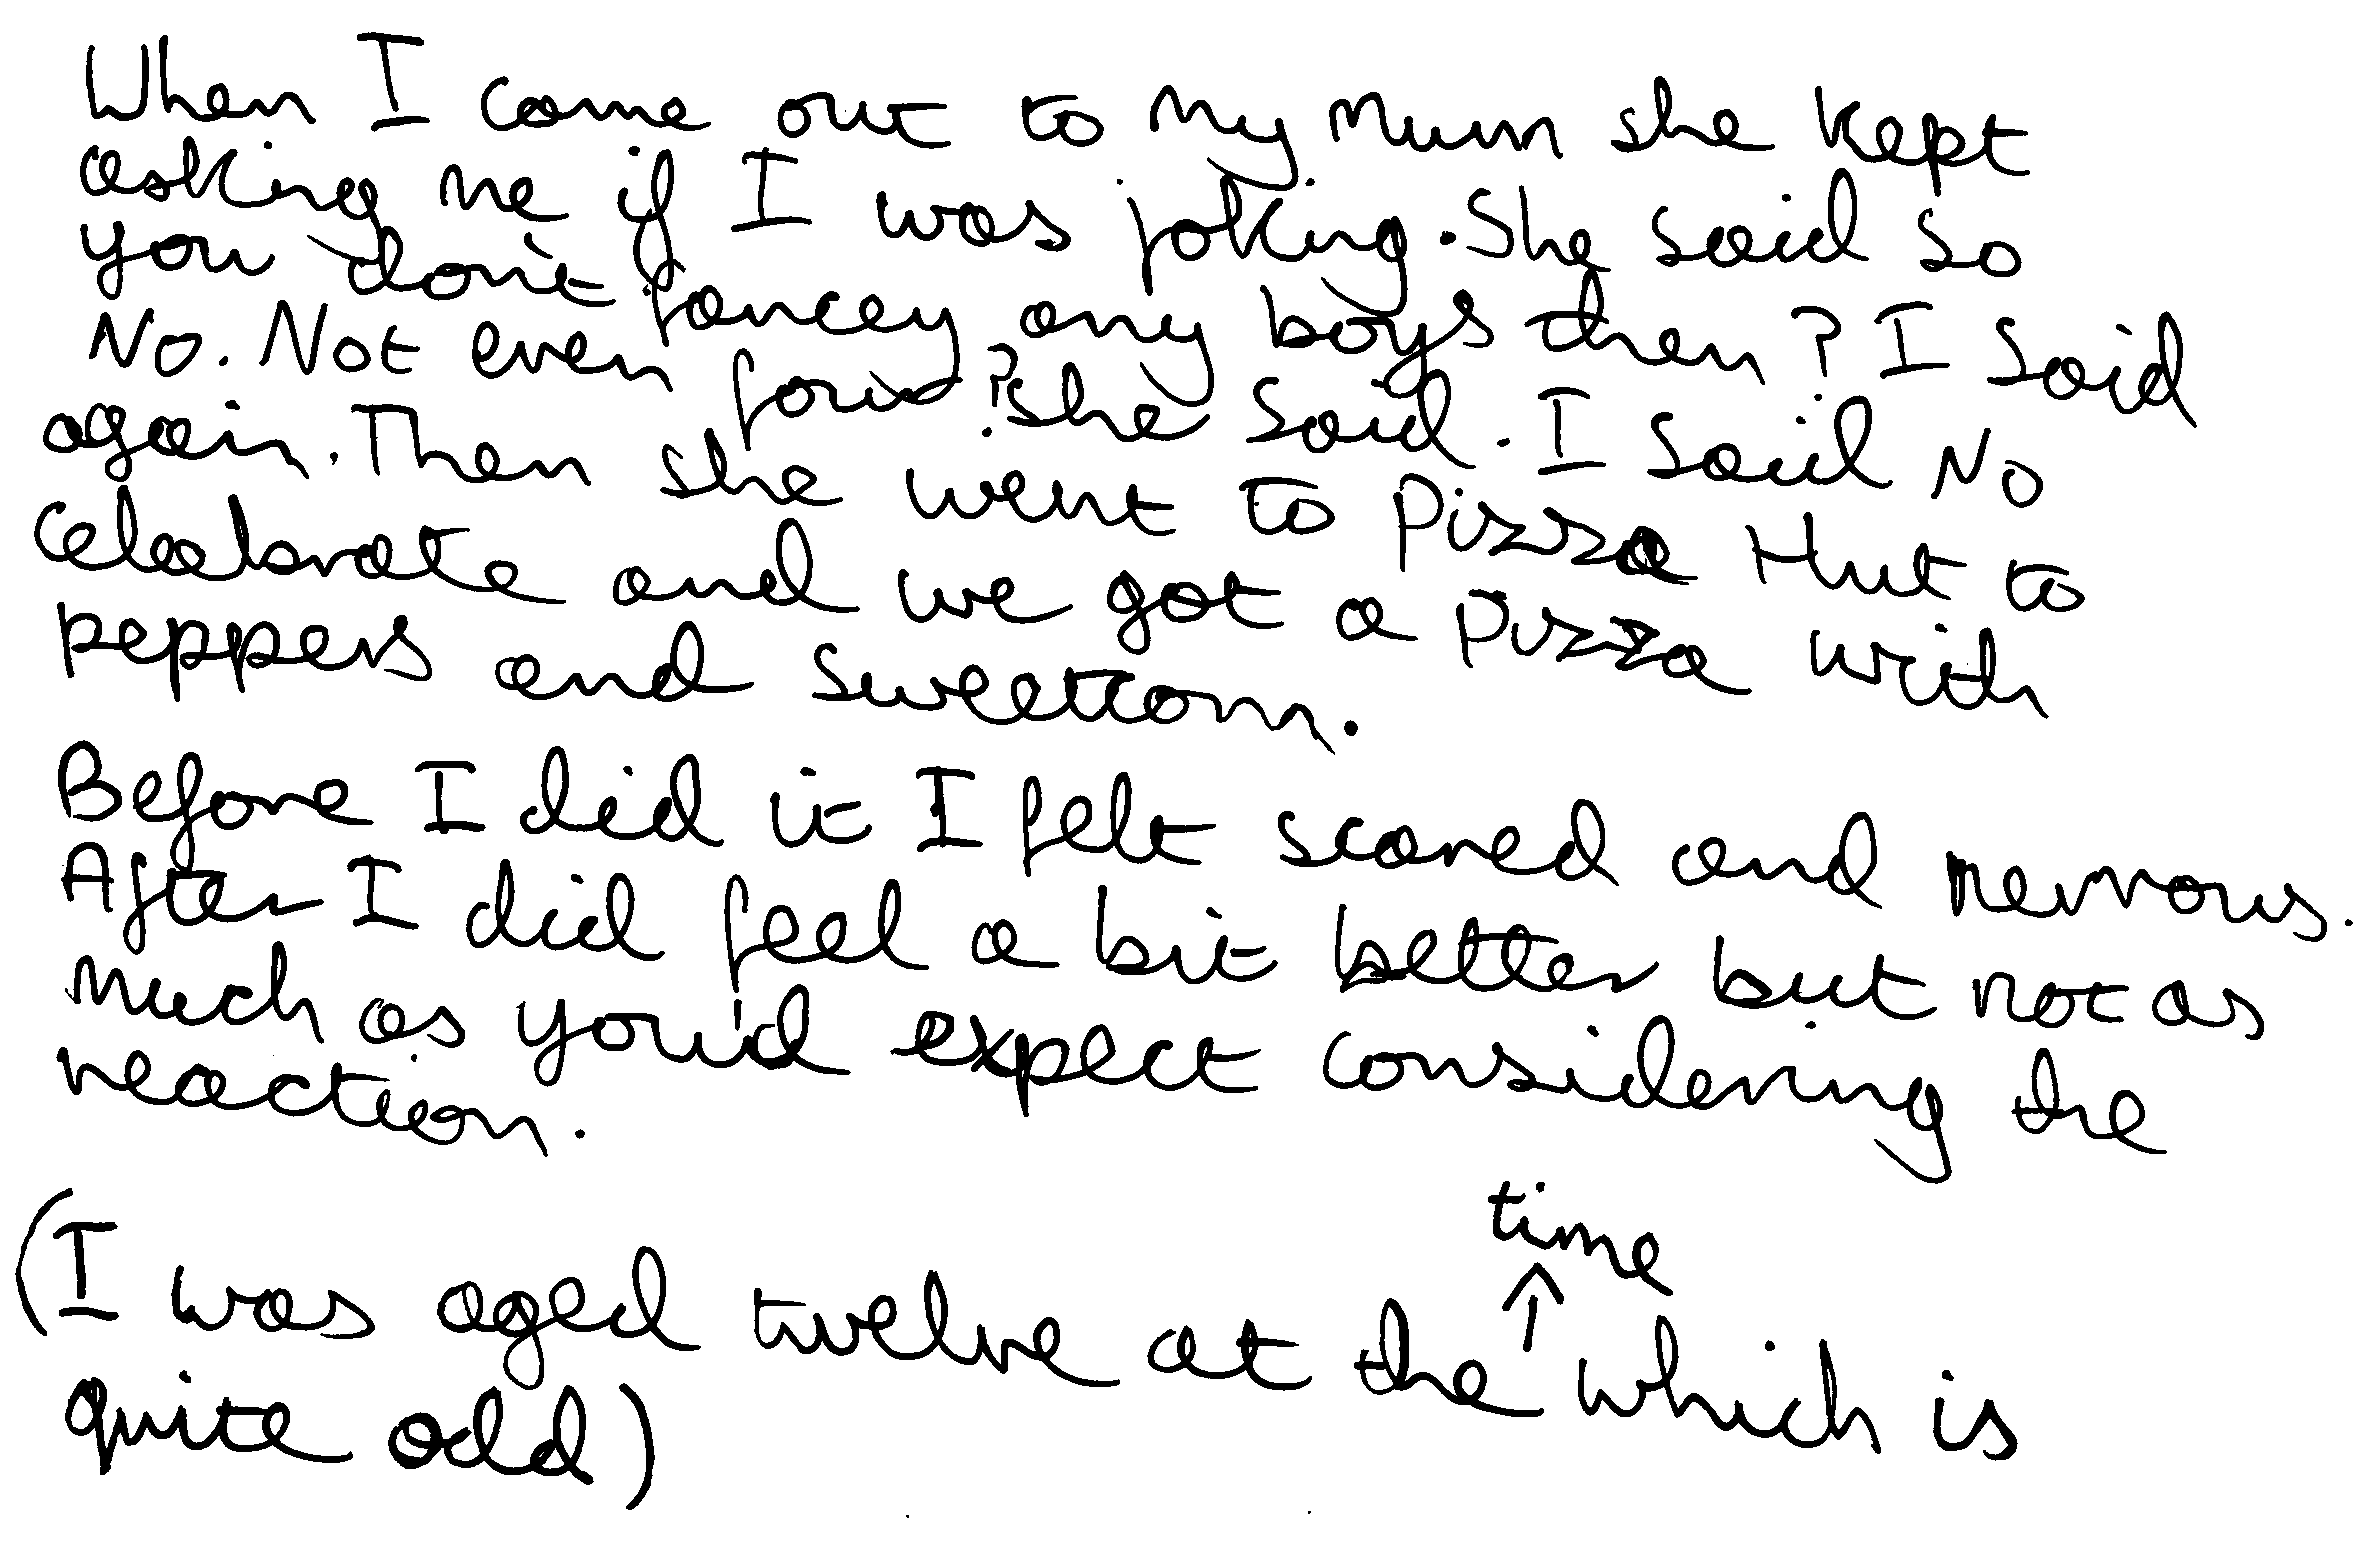 When I came out to my mum she kept
asking me if I was joking. She said so
you don't fancey any boys then? I said
No. Not even ? she said. I said No
again. Then she went to Pizza Hut to
celabrate and we got a pizza with
peppers and sweetcorn.
Before I did it I felt scared and nervous.
After I did feel a bit better but not as
much as you'd expect considering the
reaction.
(I was aged twelve at the time which is
quite odd)